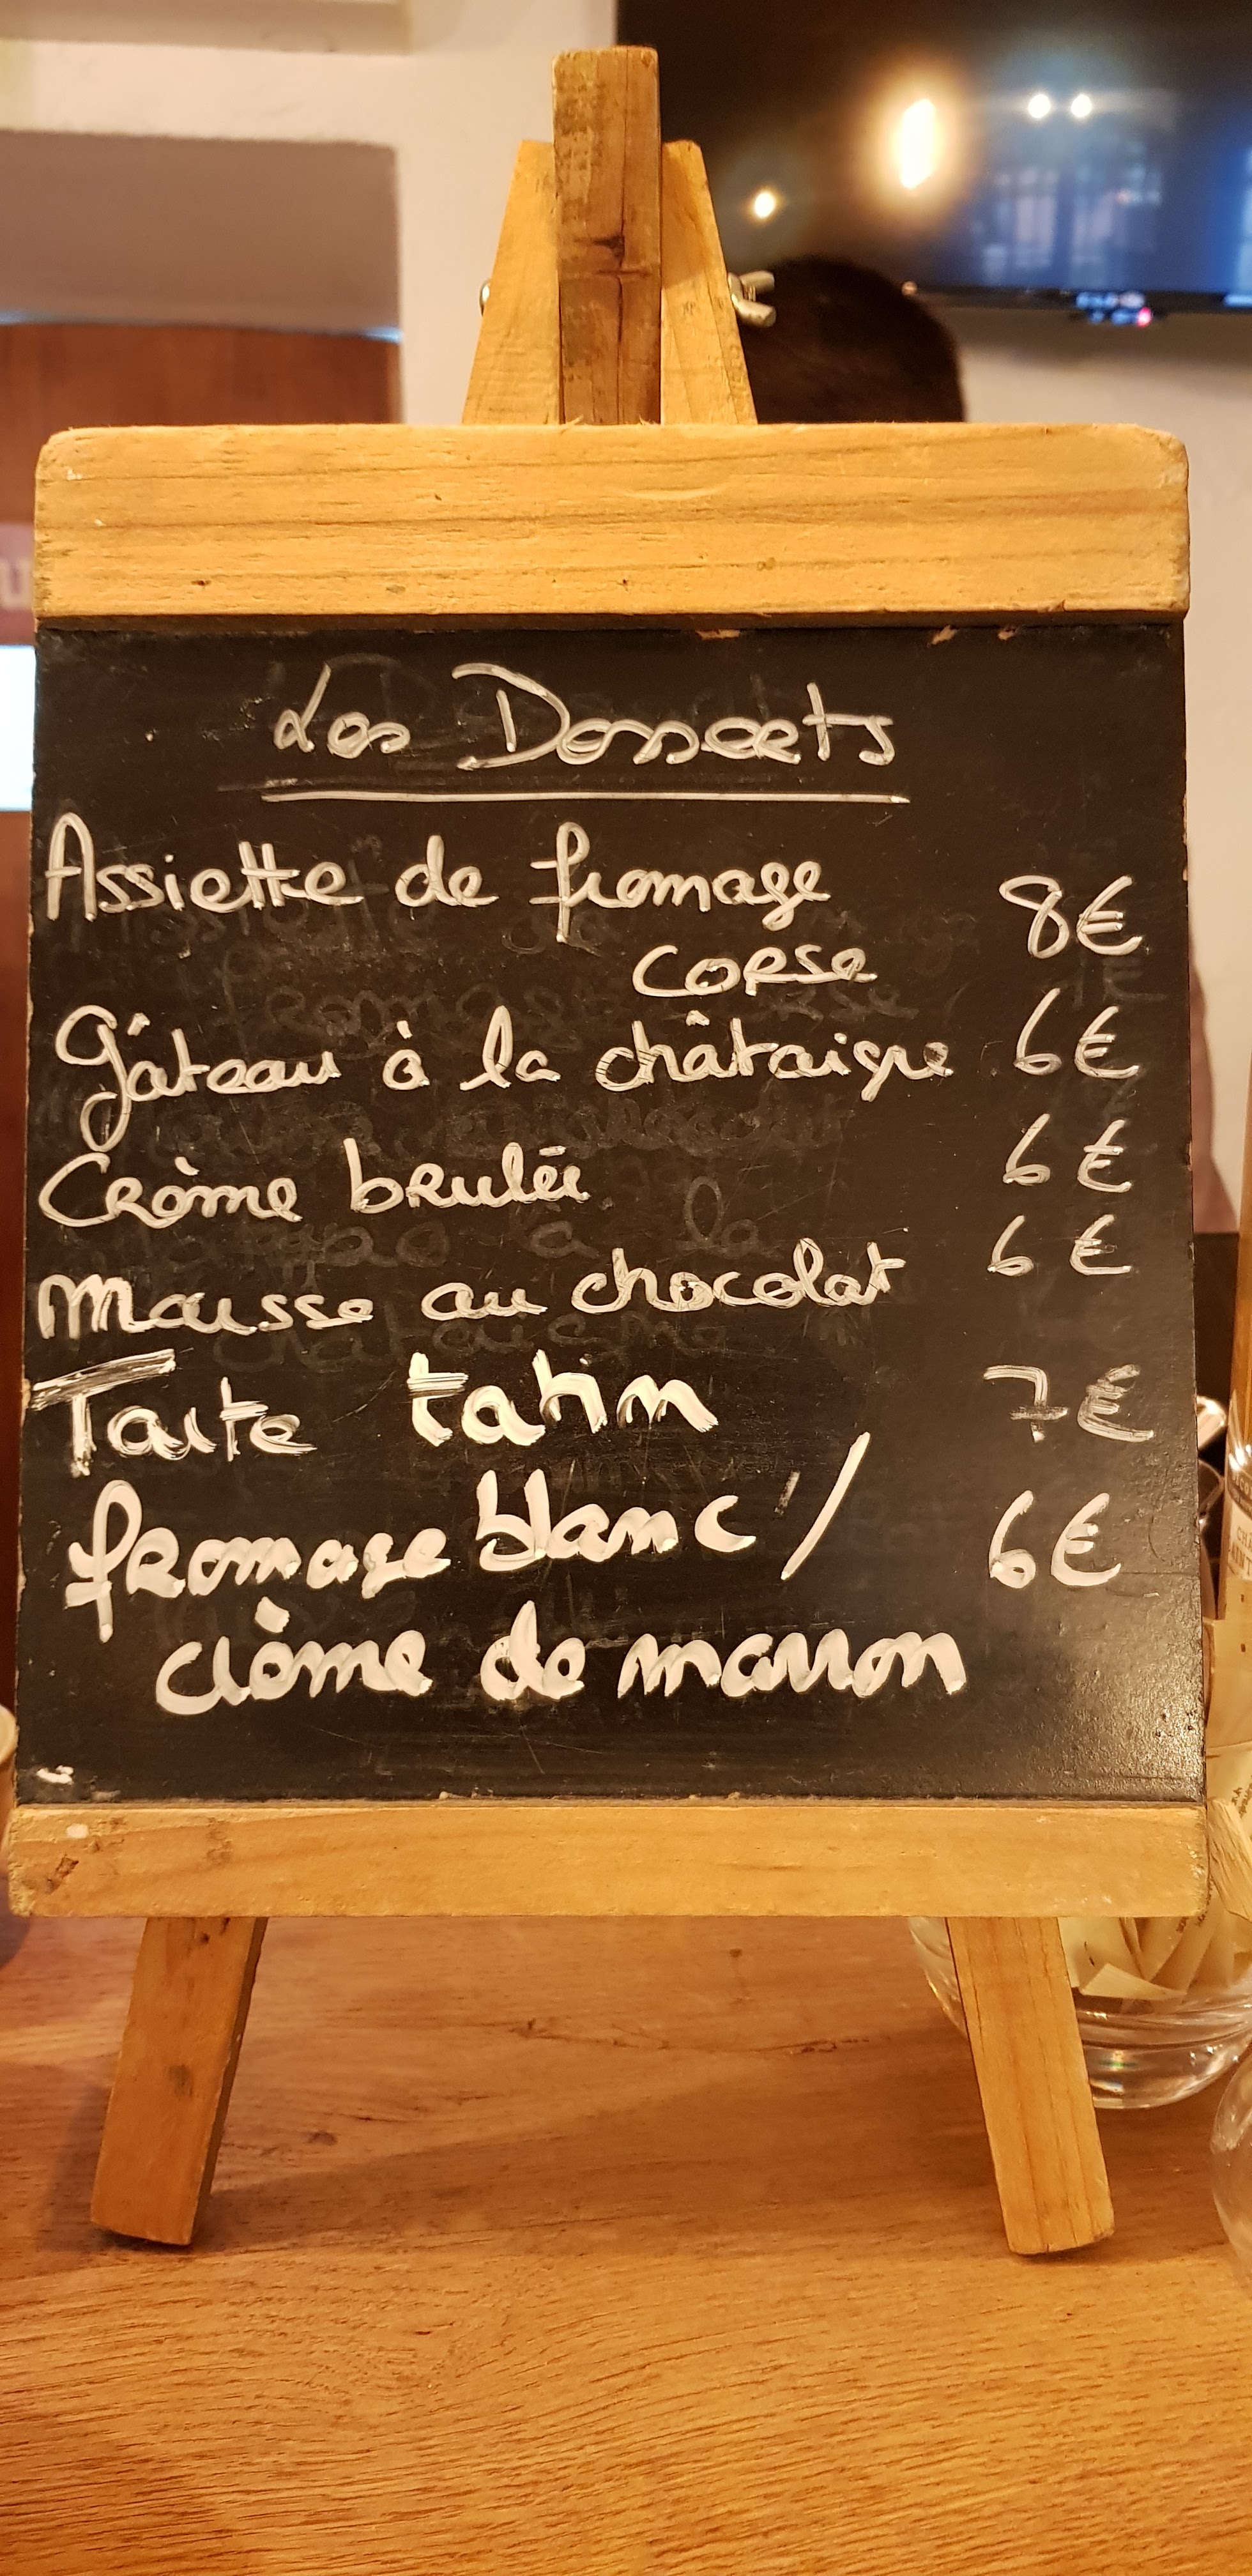 Les Desserts
Assiette de fromage 8€
corse
Gâteau à la châtaigne 6€
Crème brulée 6€
Mousse au chocolat 6€
Tarte tatin 7€
fromage blanc / 6€
crème de marron